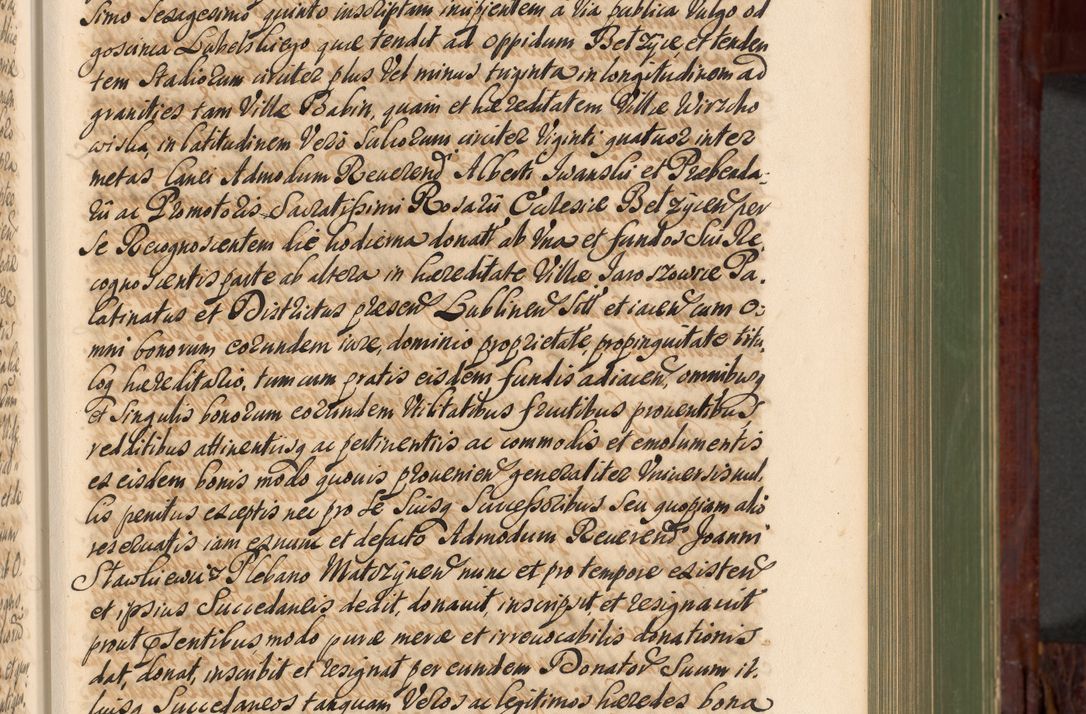 Simo Sexagesimo quinto inscriptam incipientem a via publica vulgo od
goscinca Lubelskiego quæ tendit ad oppidum Betzÿce, et tenden
tem Stadiorum circiter plus vel minus triginta in longitudinem ad
granities tam Villæ Babin, quam et hæreditatem Villæ Wirzcho
wiska, in latitudinem Vero Sulcorum circiter Viginti quatuor inter
metas Lanei Admodum Reverend Alberti Iwanski et Præbenda-
rÿ ac Promotoris Sacratissimi Rosarÿ Ecclesiæ Betzÿcen per
Se Recognoscentem die hodierna donatt ab Una et fundos Sui Re,
cognoscentis parte ab altera in hæreditate Villæ Jaroszowice Pa,
latinatus et Districtus præsen Lublinen Sitt et iacen cum O:
mni bonorum eorundem iure, dominio proprietate, propinquitate titu,
loq hæreditario, tum cum pratis eisdem fundis adiacen, omnibusq
et Singulis bonorum eorundem Utilitatibus fructibus proventibus
redditibus attinentiisq ac pertinentiis ac commodis et emolumentis
ex eisdem bonis modo quovis provenien generaliter Universis nul,
lis penitus exceptis nec pro Se Suisq Successoribus Seu quopiam alio
reservatis iam ex nunc et defacto Admodum Reverend Joanni
Stawkiewicz Plebano Matczÿnen nunc et pro tempore existen
et ipsius Succedaneis dedit, donavit inscripsit et resignavit
prout psentibus modo puræ meræ et irrevocabilis donationis
dat, donat, inscribit et resignat per eundem Donator Suum il.
liusq Succedaneos tanquam Veros ac legitimos hæredes bona